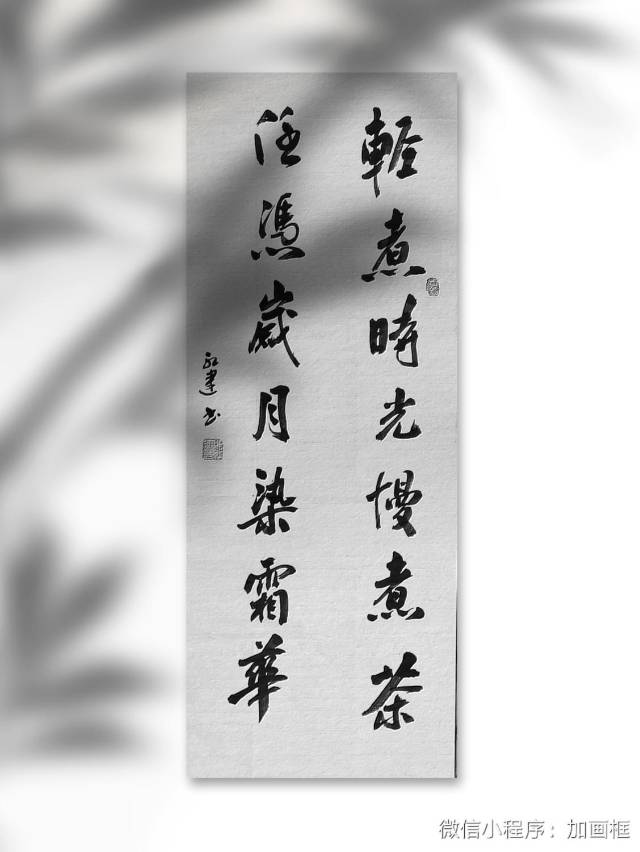 輕煮時光慢煮茶
任憑歲月染霜華
永建书
微信小程序：加画框